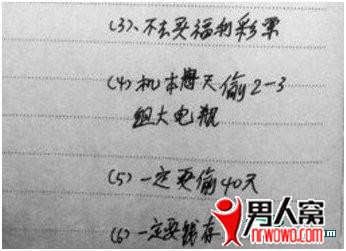 (3)、不去买福利彩票
(4)机本每天偷2-3
组大电瓶
(5)一定要偷40天
(6)一定要钱存
男人窝
nrwowo.com